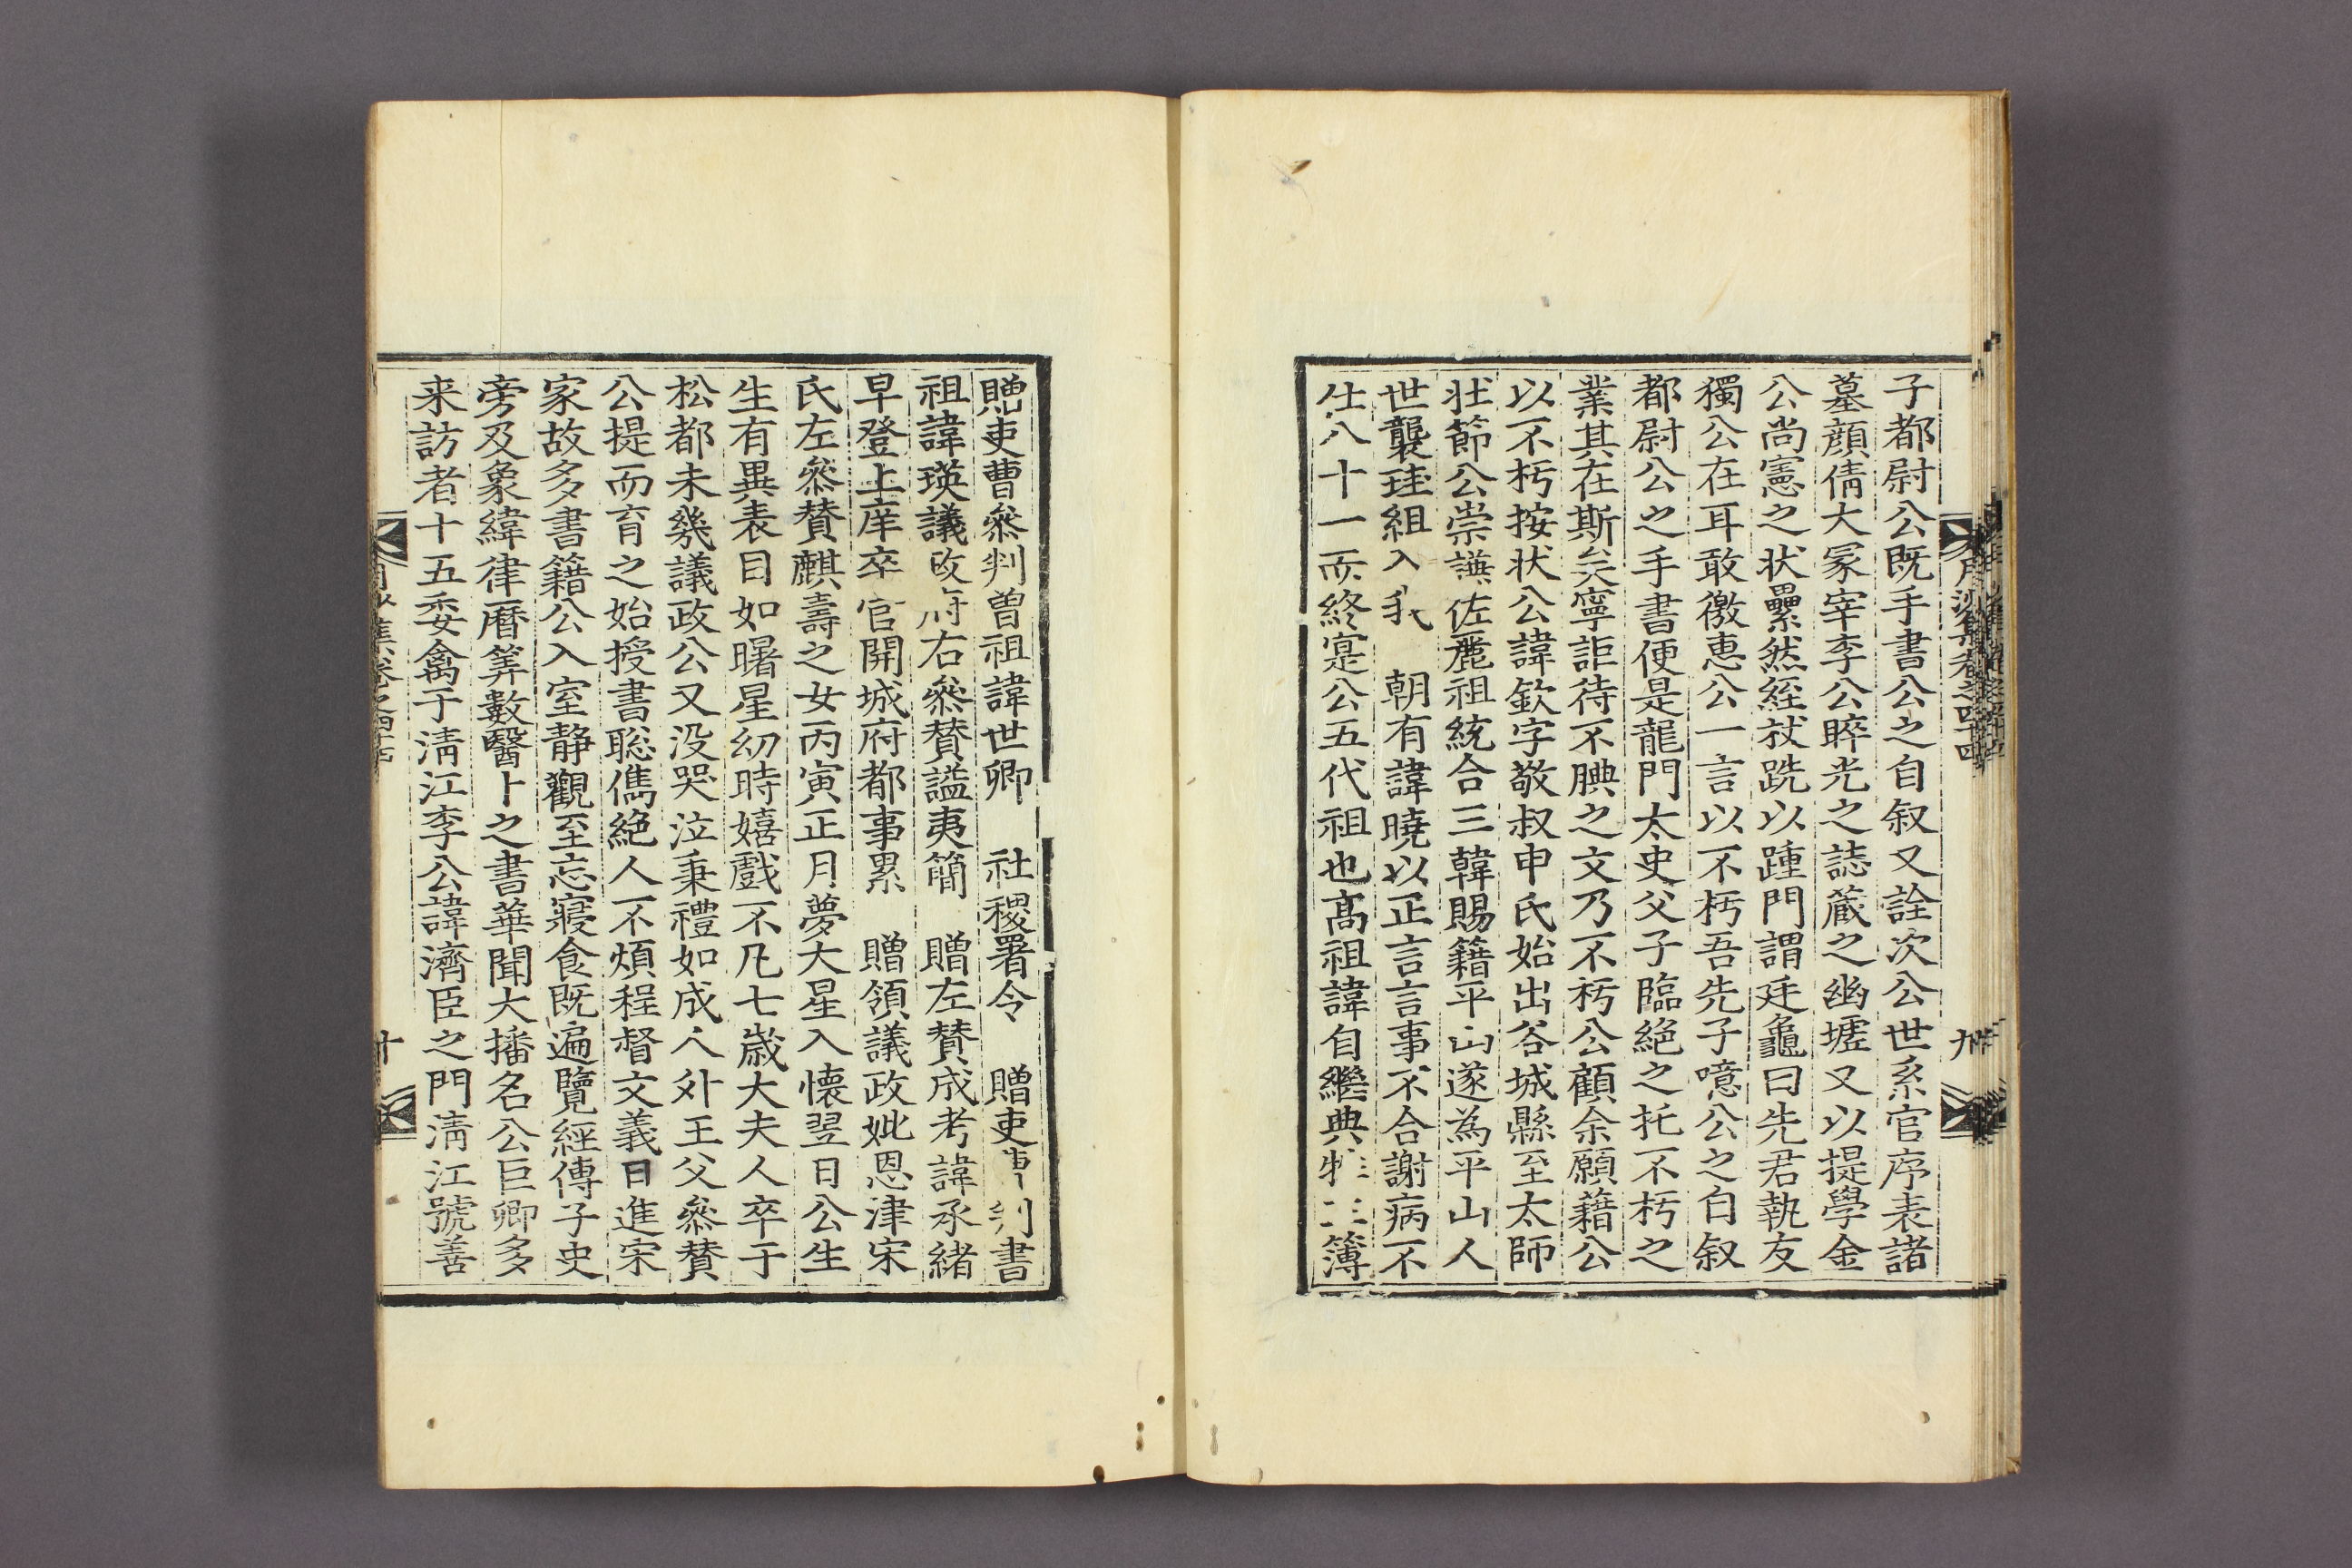 月沙集卷之四十四
九
子都尉公既手書公之自叙又詮次公世系官序表諸
墓顔倩大冢宰李公睟光之誌蔵之幽墟又以提學金
公尚憲之状纍然絰杖跣以踵門謂廷龜曰先君執友
獨公在耳敢徼惠公一言以不朽吾先子噫公之自叙
都尉公之手書便是龍門太史父子臨絶之托不朽之
業其在斯矣寧詎待不腆之文乃不朽公顧余願藉公
以不朽按状公諱欽字敬叔申氏始出谷城縣至太師
壮節公崇謙佐麗祖統合三韓賜籍平山遂為平山人
世襲珪組入我　朝有諱曉以正言言事不合謝病不
仕八十一而終寔公五代祖也髙祖諱自繼典牲主簿
贈吏曹叅判曽祖諱世卿　社稷署令　贈吏曹判書
祖諱瑛議政府右叅賛謚夷簡　贈左賛成考諱承緒
早登上庠卒官開城府都事累　贈領議政妣恩津宋
氏左叅賛麒壽之女丙寅正月夢大星入懐翌日公生
生有異表目如曙星幼時嬉戲不凡七歳大夫人卒于
松都未幾議政公又没哭泣秉禮如成人外王父叅賛
公提而育之始授書聡儁絶人不煩程督文義日進宋
家故多書籍公入室静觀至忘寢食既遍覽經傳子史
旁及象緯律曆筭數醫卜之書華聞大播名公巨卿多
来訪者十五委禽于淸江李公諱濟臣之門淸江號善
集卷之四十
十